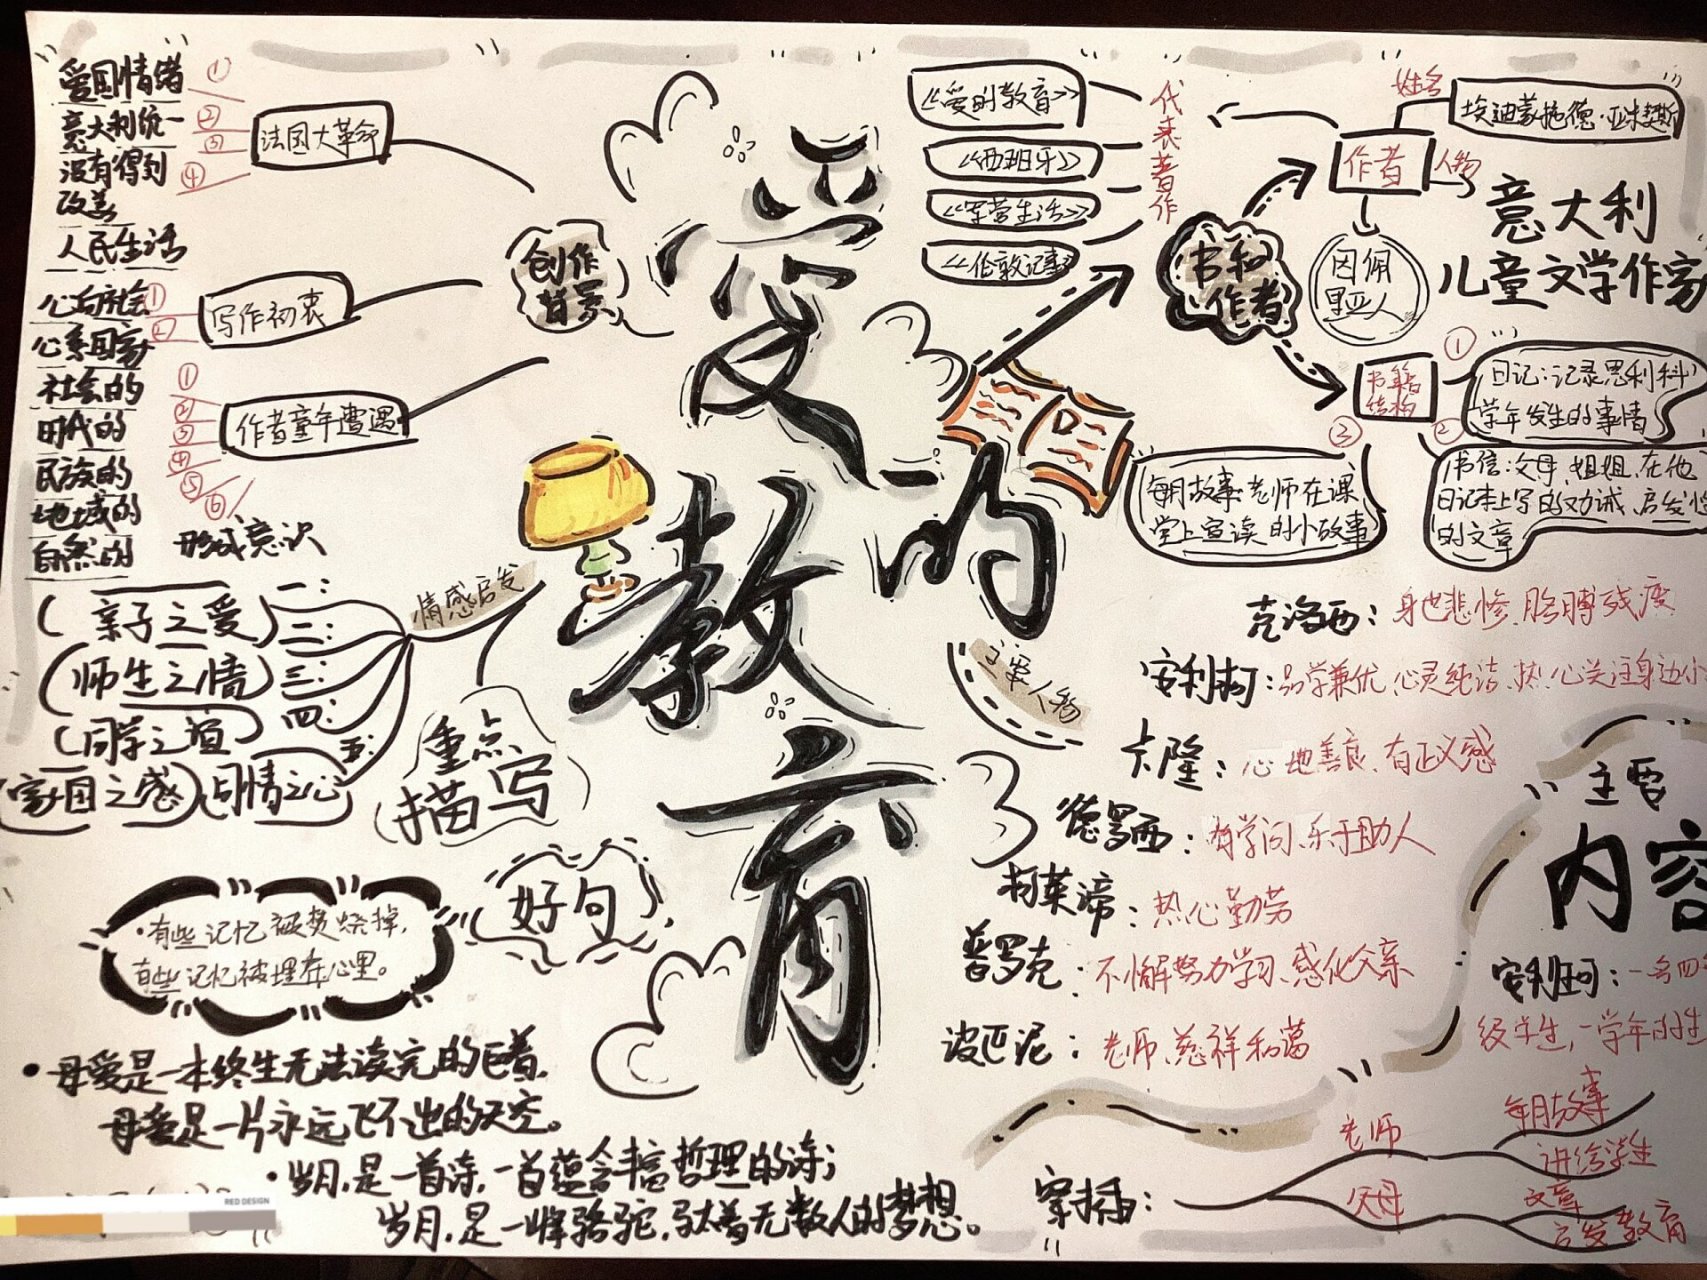 爱的教育
创作背景
法国大革命
① ② ③ ④
爱国情绪
意大利统一
没有得到
改善
人民生活
写作初衷
① ②
心向社会
心系国家
作者童年遭遇
① ② ③ ④ ⑤ ⑥
社会的
时代的
民族的
地域的
自然的
形成意识
情感启发
一：
二：
三：
四：
五：
亲子之爱
师生之情
同学之谊
家国之感
同情之心
重点
描写
好句
·有些记忆被焚烧掉，
有些记忆被埋在心里。
·母爱是一本终生无法读完的巨著，
母爱是一片永远飞不出的天空。
·岁月，是一首诗，一首蕴含丰富哲理的诗；
岁月，是一峰骆驼，驮着无数人的梦想。
RED DESIGN
书和
作者
作者
姓名
埃迪蒙托德·亚米契斯
人物
意大利
儿童文学作家
因佩
里亚人
代表著作
《爱的教育》
《西班牙》
《军营生活》
《伦敦记事》
书籍
结构
①
日记：记录恩利科
学年发生的事情
②
书信：父母、姐姐、在他
日记本上写的劝诫、启发性
的文章
③
每月故事：老师在课
堂上宣读的小故事
主要人物
克洛西：身世悲惨、胳膊残废
安利柯：品学兼优、心灵纯洁、热心关注身边小
卡隆：心地善良、有正义感
德罗西：有学问、乐于助人
可莱谛：热心勤劳
普罗克：不懈努力学习、感化父亲
波巴泥：老师、慈祥和蔼
主要
内容
安利柯：一名四年
级学生，一学年的生
穿插：
老师
每月故事
讲给学生
父母
文章
启发教育